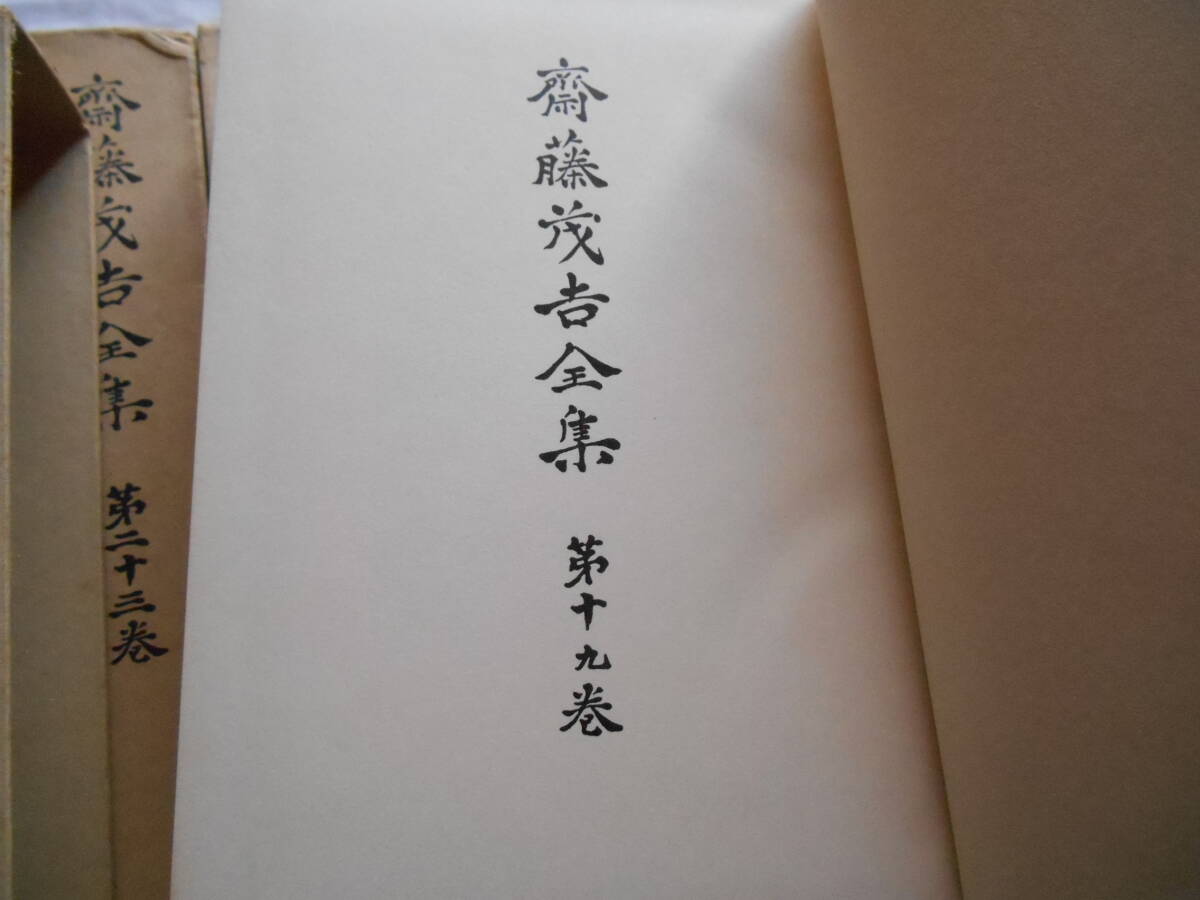 齋藤茂吉全集 第十九巻
齋藤茂吉全集 第二十三巻